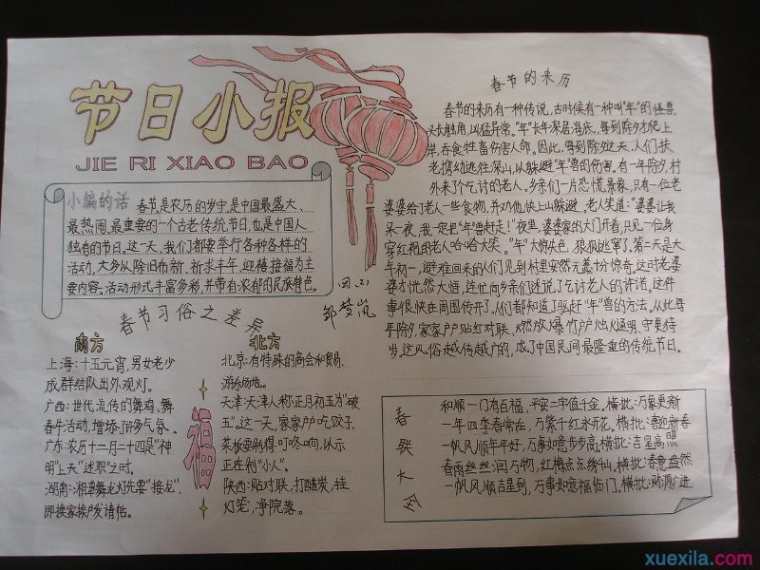 节日小报
JIE RI XIAO BAO
小编的话 春节是农历的岁首,是中国最盛大、
最热闹、最重要的一个古老传统节日,也是中国人
独有的节日。这一天,我们都要举行各种各样的
活动,大多从除旧布新、祈求丰年、迎禧接福为主
要内容。活动形式丰富多彩,并带有浓郁的民族特色。
春节习俗之差异
南方
上海:十五元宵,男女老少
成群结队出外观灯。
广西:世代流传的舞鸡、舞
春牛活动,增添節多气氛。
广东:农历十二月二十四是“神
明上天”述职之时。
湖南:湘章舞龙灯先要“接龙”,
即挨家挨户发请帖。
北方
北京:有特殊的商会和贸易
游乐场地。
天津:天津人称正月初五为“破
五”,这一天,家家户户吃饺子,
菜板要剁得叮咚响,以示
正在剁“小人”。
陕西:贴对联、打醋炭、挂
灯笼,净院落。
福
春节的来历
春节的来历有一种传说,古时候有一种叫“年”的怪兽,
头长触角,凶猛异常。“年”长年深居海底,每到除夕才爬上
岸,吞食牲畜伤害人命。因此,每到除夕这天,人们扶
老携幼逃往深山,从躲避“年”兽的伤害。有一年除夕,村
外来了个乞讨的老人。乡亲们一片恐慌景象,只有一位老
婆婆给了老人一些食物,并劝他快上山躲避。老人笑道:“婆婆让我
呆一夜,我一定把“年”兽赶走!”夜里,婆婆家的大门开着,只见一位身
穿红袍的老人哈哈大笑。“年”大惊失色,狼狈逃窜了。第二天是大
年初一,避难回来的人们见到村里安然无恙十分惊奇,这时老婆
婆才恍然大悟,连忙向乡亲们述说了乞讨老人的许诺,这件
事很快在周围传开了,人们都知道了驱赶“年”兽的方法。从此每
年除夕,家家户户贴红对联、燃放爆竹户户烛火通明,守更待
岁,这风俗越传越广的,成了中国民间最隆重的传统节日。
春联大全
和顺一门有百福,平安二字值千金,横批:万象更新
一年四季春常在,万紫千红永开花,横批:喜迎新春
一帆风顺年年好,万事如意步步高,横批:吉星高照
春雨丝丝润万物,红梅点点绣山,横批:春意盎然
一帆风顺吉星到,万事如意福临门,横批:财源广进
xuexila.com